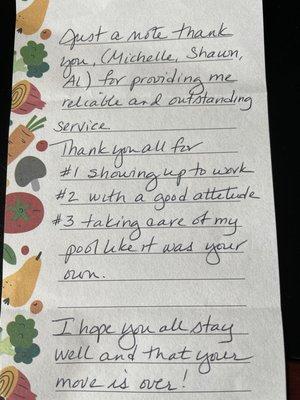 Just a note thank
you, (Michelle, Shawn,
AL) for providing me
reliable and outstanding
service
Thank you all for
#1 showing up to work
#2 with a good attetude
#3 taking care of my
pool like it was your
own.
I hope you all stay
well and that your
move is over!